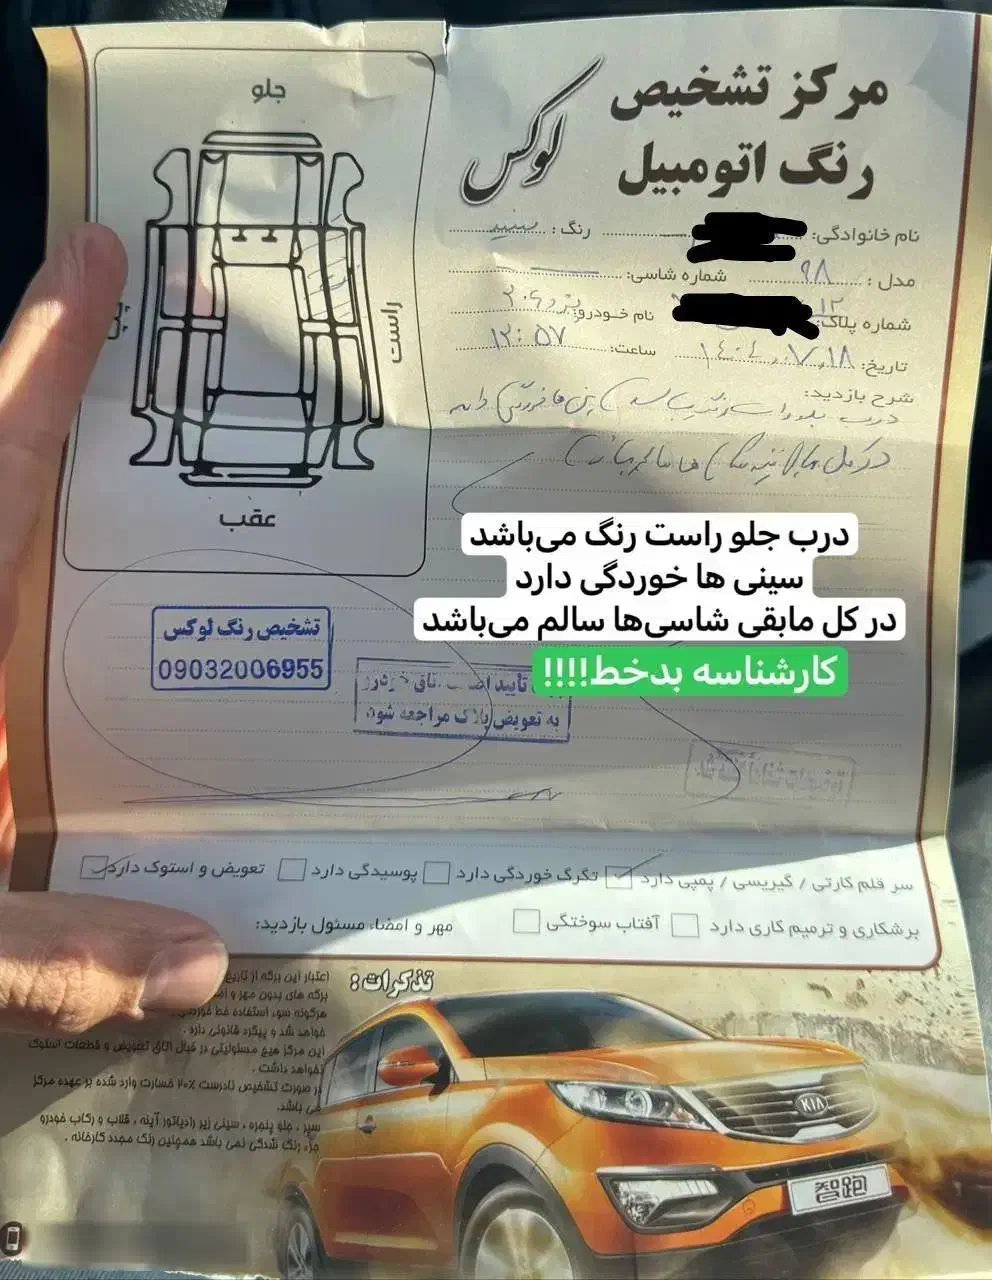 مرکز تشخیص
رنگ اتومبیل
لوکس
جلو
راست
چپ
عقب
نام خانوادگی:
رنگ: سفید
مدل: ۹۸
شماره شاسی:
شماره پلاک: ۱۲
نام خودرو: پژو ۲۰۶
تاریخ: ۱۴۰۴/۰۷/۱۸
ساعت: ۱۲:۵۷
شرح بازدید:
درب جلو راست رنگ می‌باشد
سینی ها خوردگی دارد
در کل مابقی شاسی‌ها سالم می‌باشد
کارشناسه بدخط!!!!
تشخیص رنگ لوکس
09032006955
تایید اتاق خودرو
به تعویض پلاک مراجعه شود
سر قلم کارتی / گیریسی / پمپی دارد
تگرگ خوردگی دارد
پوسیدگی دارد
تعویض و استوک دارد
برشکاری و ترمیم کاری دارد
آفتاب سوختگی
مهر و امضاء مسئول بازدید:
تذکرات:
اعتبار این برگه از تاریخ
برگه های بدون مهر و
هرگونه سوء استفاده
خواهد شد و پیگرد قانونی دارد.
این مرکز هیچ مسئولیتی در قبال اتاق تعویض و قطعات استوک
نخواهد داشت.
در صورت تشخیص نادرست ۲۰٪ خسارت وارد شده بر عهده مرکز
می باشد.
سپر، جلو پنجره، سینی زیر رادیاتور آینه، قلاب و رکاب خودرو
جزء رنگ شدگی نمی باشد همچنین رنگ مجدد کارخانه.
KIA
智跑